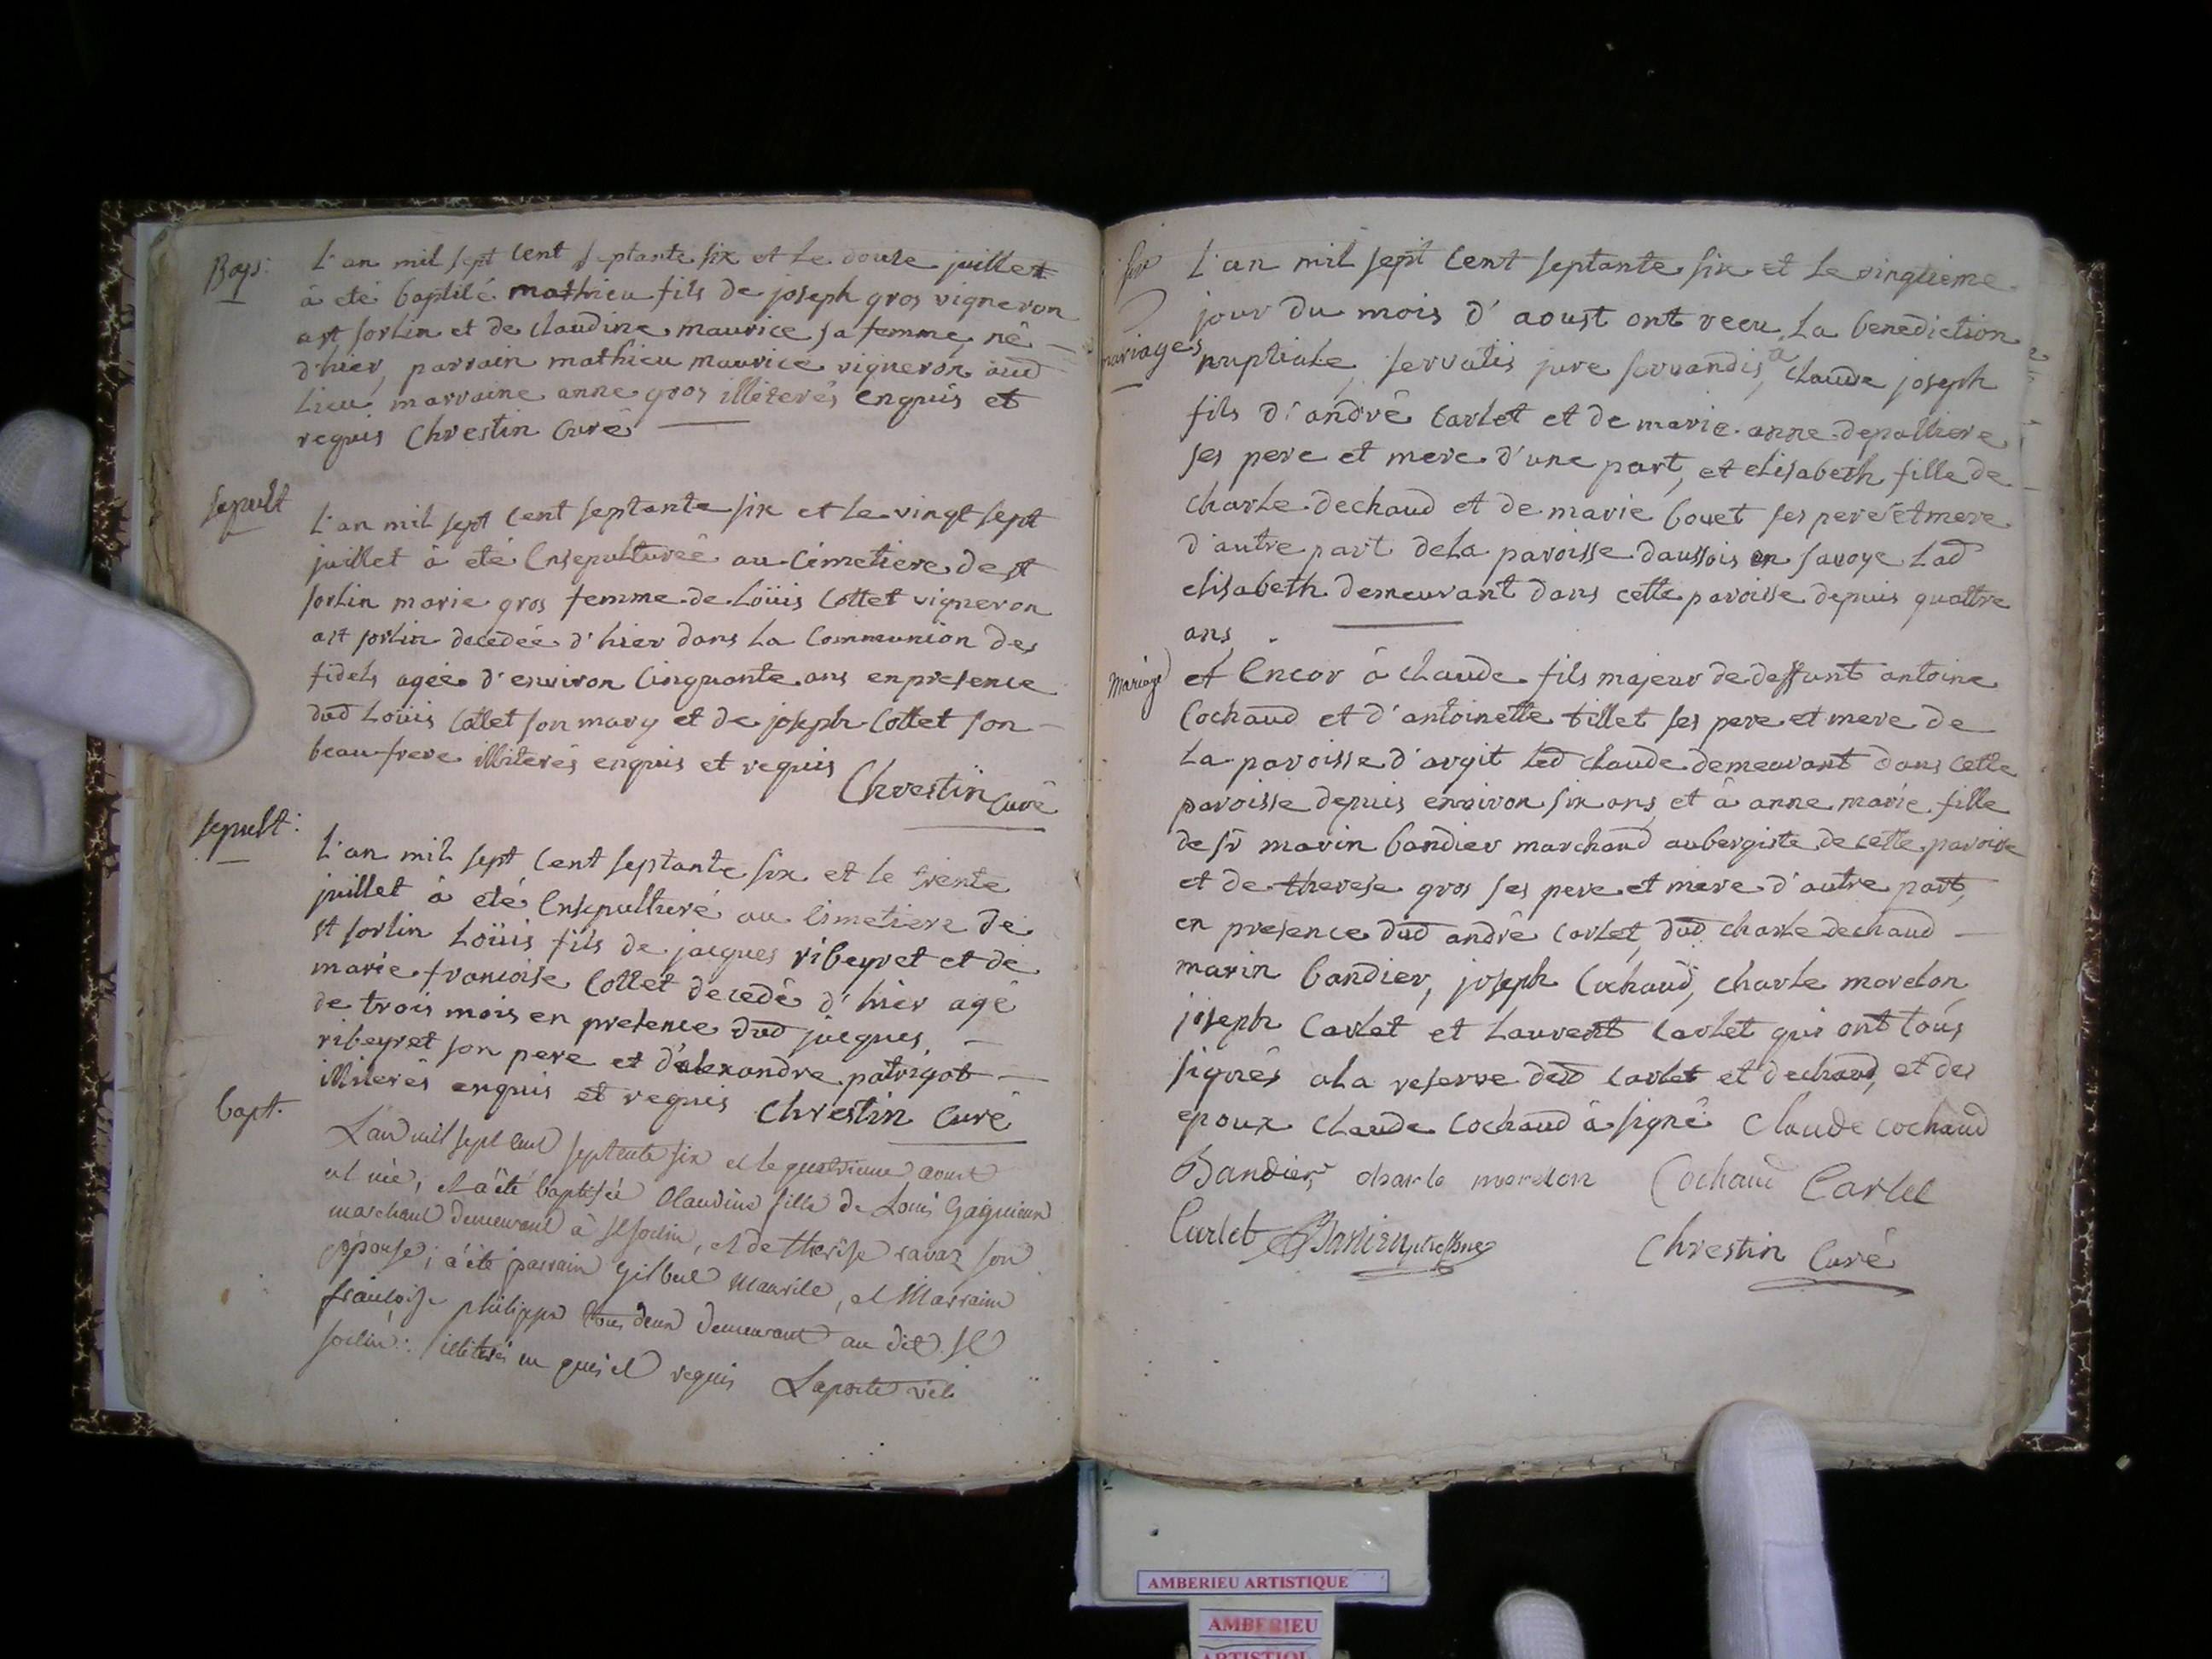 Bap:
L'an mil sept cent septante six et le douse juillet
à eté baptisé mathieu fils de joseph gros vigneron
a st sorlin et de claudine maurice sa femme, né
d'hier, parrain mathieu maurice vigneron aud
lieu marraine anne gros illiterés enquis et
requis Chrestin Curé
sepult
L'an mil sept cent septante six et le vingt sept
juillet à eté Ensepulturéé au cimetiere de st
sorlin marie gros femme de Loüis Cottet vigneron
a st sorlin decedéé d'hier dans la Communion des
fidels agéé d'environ Cinquante ans en presence
dud Loüis Cottet son mary et de joseph Cottet son
beau-frere illiterés enquis et requis
Chrestin Curé
sepult:
L'an mil sept cent septante six et le trente
juillet à eté Ensepulturé au Cimetiere de
st sorlin Loüis fils de jacques ribeyret et de
marie françoise Cottet decedé d'hier agé
de trois mois en presence dud jacques
ribeyret son pere et d'alexandre patrigot
illiterés enquis et requis Chrestin Curé
bapt.
L'an mil sept cent septente six et le quatrieme aoust
est née, et a été baptisée Claudine fille de Louis Gagnieur
marchand demeurant à st sorlin, et de therése ravaz son
épouse; a été parrain Gilbert Maurice, et Marraine
françoise philippe tous deux demeurant au dit st
sorlin: illiterés enquis et requis Laporte vic
mariages
L'an mil sept cent septante six et le vingtieme
jour du mois d'aoust ont recu la benediction
nuptiale, servatis jure servandis, claude joseph
fils d'andré Carlet et de marie anne depalliere
ses pere et mere d'une part, et elisabeth fille de
charle dechaud et de marie bouet ses pere et mere
d'autre part de la paroisse daussois en savoye lad
elisabeth demeurant dans cette paroisse depuis quattre
ans
Mariage
et Encor à claude fils majeur de deffunt antoine
Cochaud et d'antoinette tillet ses pere et mere de
la paroisse d'argit led claude demeurant dans cette
paroisse depuis environ six ans, et à anne marie fille
de sr marin bandier marchand aubergiste de cette paroisse
et de therese gros ses pere et mere d'autre part,
en presence dud andré Carlet, dud charle dechaud
marin bandier, joseph Cochaud, charle morelon
joseph Carlet et Laurent Carlet qui ont tous
signés a la reserve desd Carlet et dechaud, et des
epoux claude Cochaud à signé Claude cochaud
Bandier charle morelon Cochaud Carlet
Carlet
Chrestin Curé
AMBERIEU ARTISTIQUE
AMBERIEU
ARTISTIQU